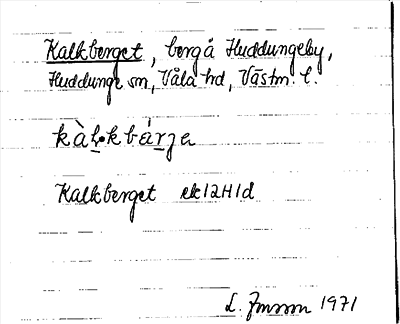 Kalkberget, berg å Huddungeby,
Huddunge sn, Våla hd, Västm. l.
kàl̲·kbárʒe
Kalkberget ek 12H1d
L. Jonsson 1971